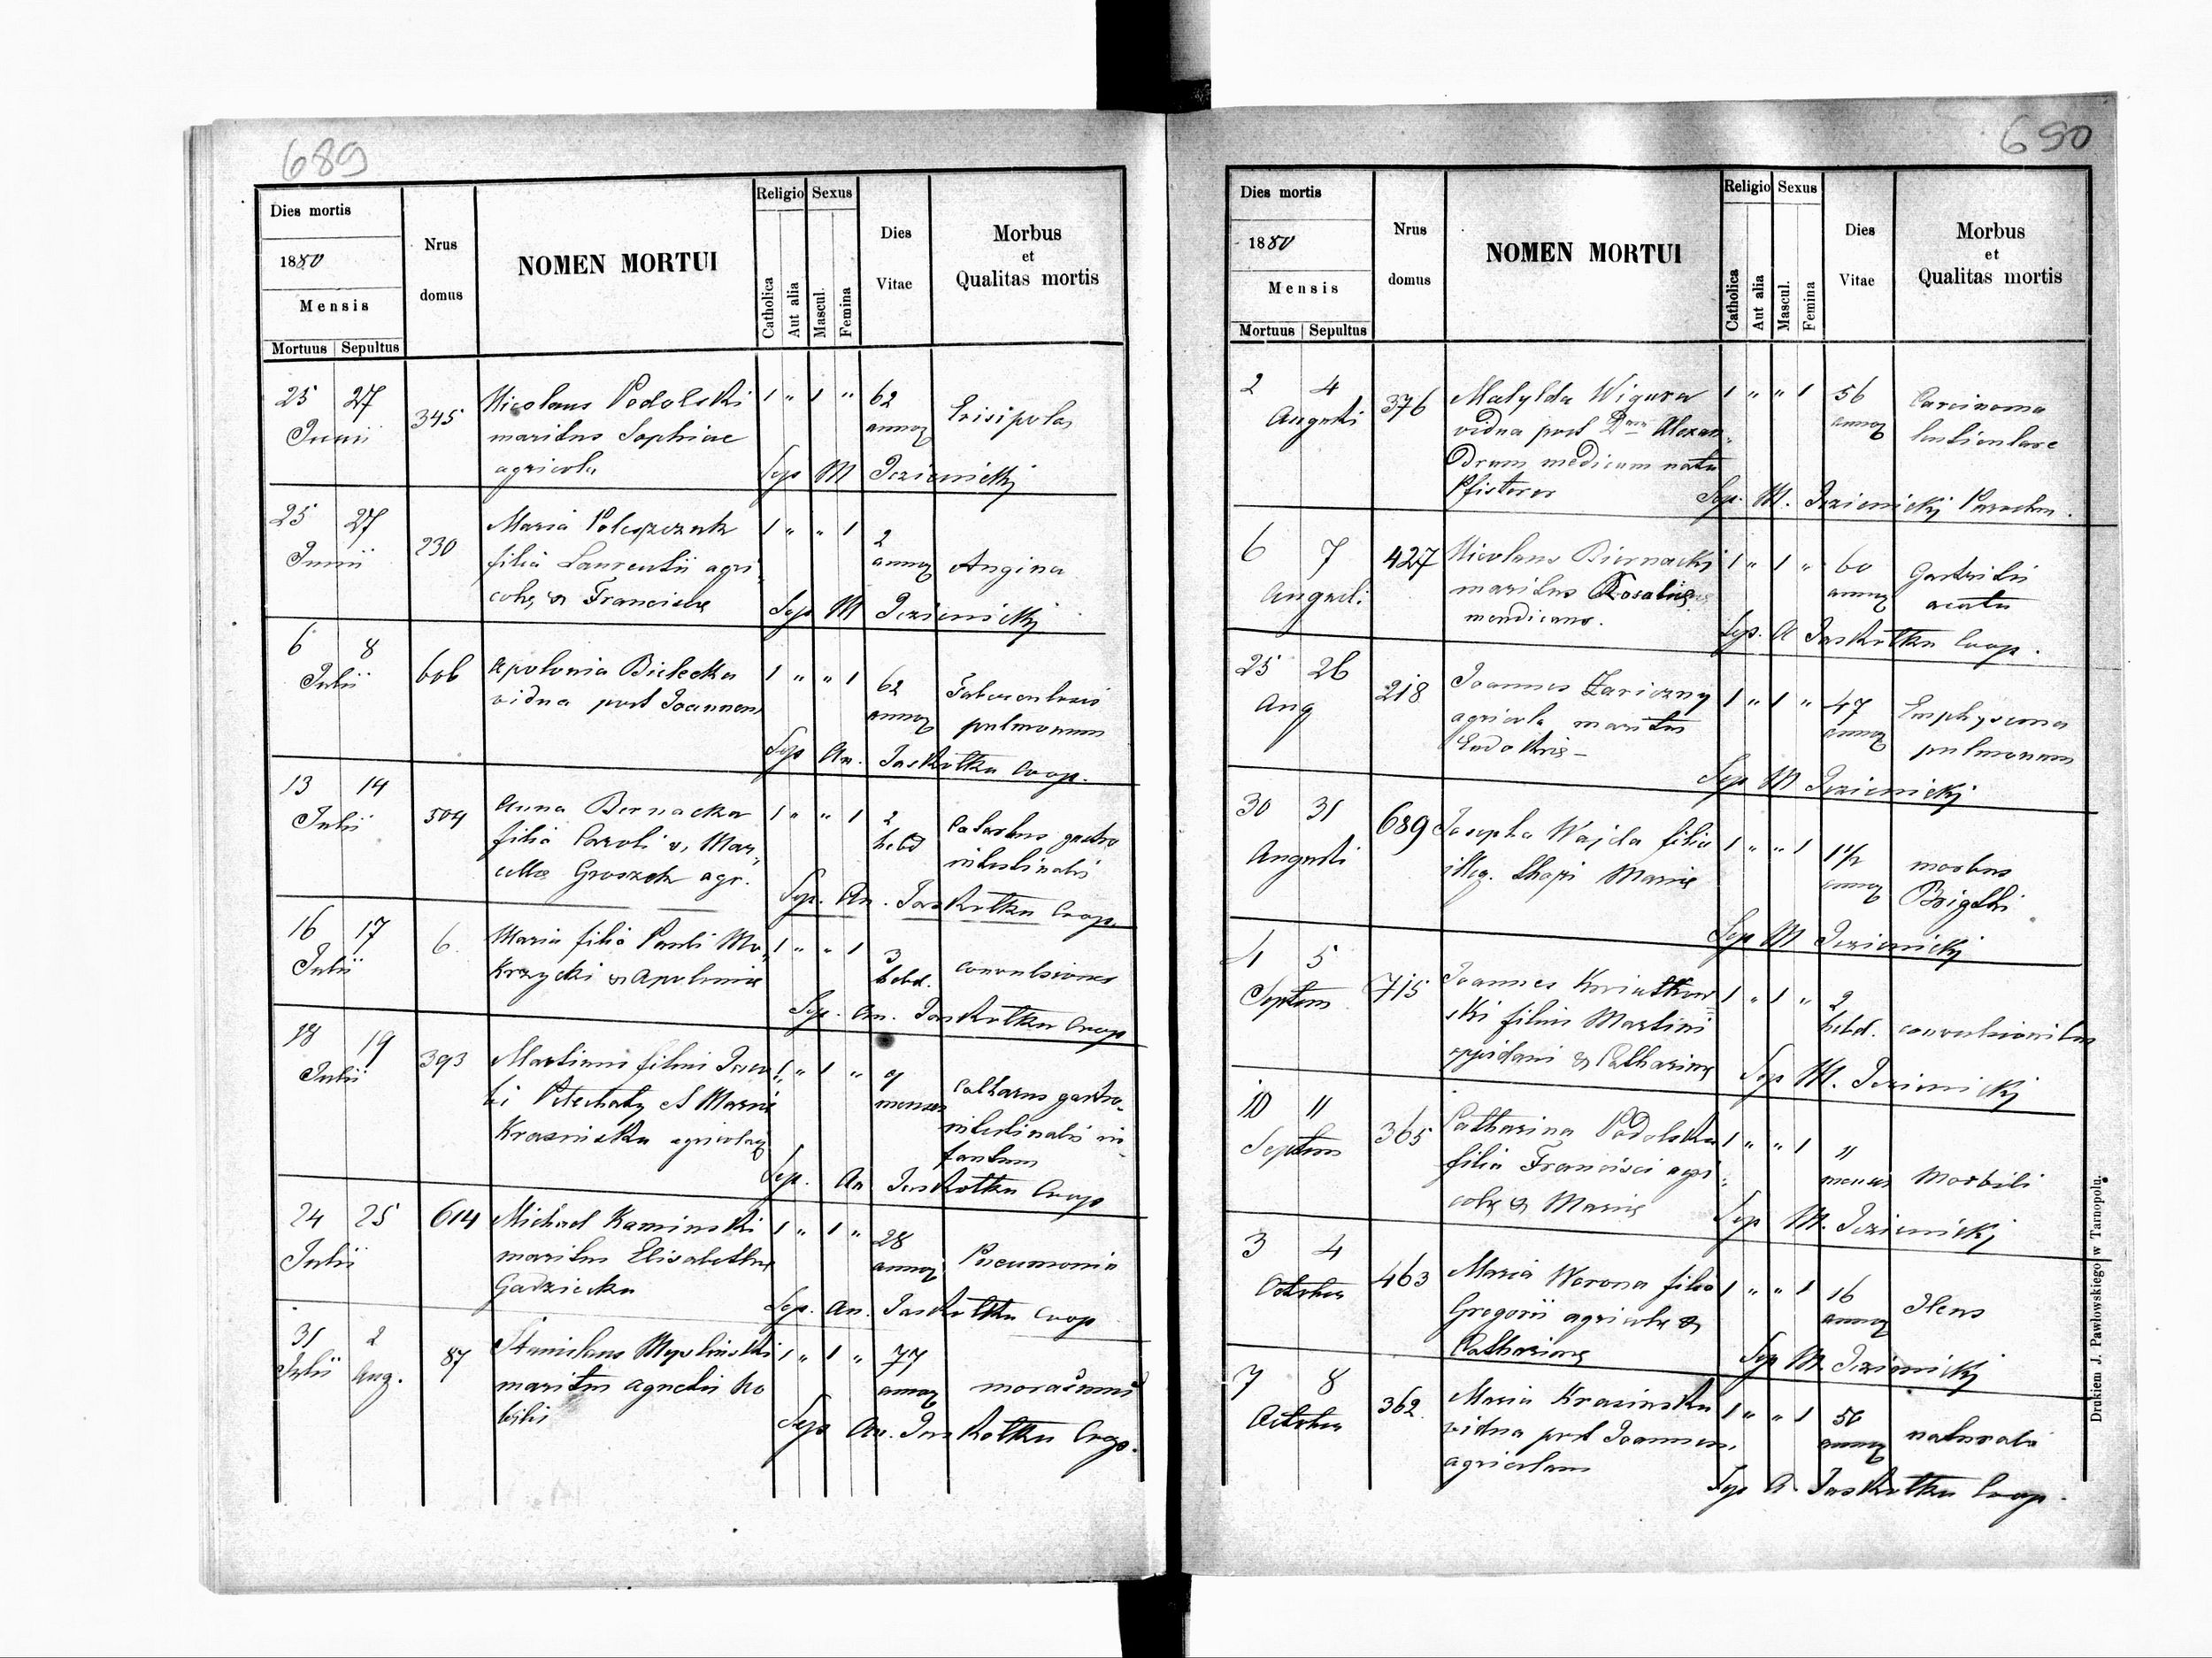 689
Dies mortis
1880
Mensis
Mortuus Sepultus
Nrus
domus
NOMEN MORTUI
Religio Sexus
Catholica
Aut alia
Mascul.
Femina
Dies
Vitae
Morbus
et
Qualitas mortis
25 27 345 Nicolaus Podolski 1 " 1 " 62
Junii maritus Sophiae annor
agricola Sep M
25 27 230 Maria 1 " " 1 2 Angina
Junii filia Laurentii agri
colae & Franciscae Sep M
6 8 606 Apolonia Bielecka 1 " " 1 62 Tuberculosis
Julii vidua post Joannem annor pulmonum
Sep An. Jaskółka Coop.
13 14 504 Anna Bernacka 1 " " 1 2 Catarhus gastro
Julii filia Caroli & Mar hebd intestinalis
cellae Groszek agr.
Sep. An. Jaskółka Coop.
16 17 6. Maria filia Pauli Mo 1 " " 1 3 convulsiones
Julii krzycki & Apoloniae hebd.
Sep. An. Jaskółka Coop
18 19 393 Martinus filius Jaco 1 " 1 " 9 Catharus gastro-
Julii bi et Mariae menses intestinalis in
Krasnicka agricolar fantum
Sep. An Jaskółka Coop
24 25 614 Michael Kaminski 1 " 1 " 28 Pneumonia
Julii maritus Elisabethae annor
Gadziecka
Sep. An. Jaskółka Coop
31 2 87 Stanislaus Myslinski 1 " 1 " 77
Julii Aug. maritus Agnetis No annor
bilis
Sep An. Jaskółka Coop.
690
Dies mortis
1880
Mensis
Mortuus Sepultus
Nrus
domus
NOMEN MORTUI
Religio Sexus
Catholica
Aut alia
Mascul.
Femina
Dies
Vitae
Morbus
et
Qualitas mortis
2 4 376 Matylda Wigura 1 " " 1 56 Carcinoma
Augusti vidua post Alexan annor
drum medicum nata
Pfisterer Sep. M. Parochus.
6 7 427 Nicolaus Biernacki 1 " 1 " 60 Gastritis
Augusti maritus Rosaliae annor acuta
mendicans.
Sep. A Jaskółka Coop.
25 26 218 Joannes Zariczny 1 " 1 " 47 Emphysema
Aug agricola maritus annor pulmonum
Eudokiae
Sep M
30 31 689 Josepha Wajda filia 1 " " 1 1½ morbus
Augusti illeg. Mariae annor Brigthi
Sep M
4 5 715 Joannes Kwiatkow 1 " 1 " 2
Septem ski filius Martini hebd. convulsionibus
oppidani & Catharinae
Sep M.
10 11 365 Catharina Podolska 1 " " 1 11
Septem filia Francisci agri menses Morbili
colae & Mariae Sep M.
3 4 463 Maria Worona filia 1 " " 1 16 Ileus
Gregorii agricolae & annor
Catharinae Sep M
7 8 362 Maria Krasinska 1 " " 1 50 naturalis
vidua post Joannem annor
agricolam
Sep A. Jaskółka Coop.
Drukiem J. Pawłowskiego w Tarnopolu.